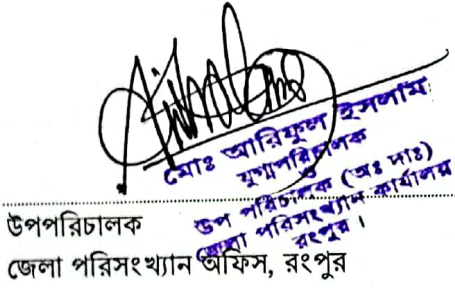 মোঃ আরিফুল ইসলাম
যুগ্মপরিচালক
ও
উপ পরিচালক (অঃ দাঃ)
জেলা পরিসংখ্যান কার্যালয়
রংপুর।
উপপরিচালক
জেলা পরিসংখ্যান অফিস, রংপুর